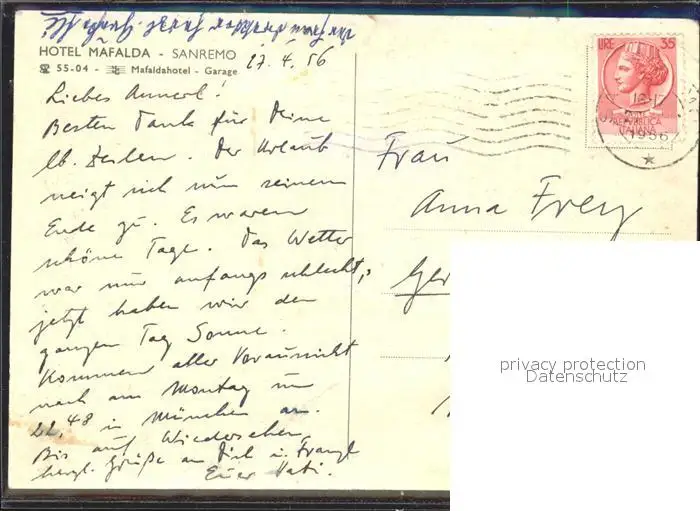 HOTEL MAFALDA - SANREMO
55-04 - Mafaldahotel - Garage
17.4.56
Liebes Annerl!
Besten Dank für Deine
lb. Zeilen. Der Urlaub
neigt sich nun seinem
Ende zu. Es waren
schöne Tage. Das Wetter
war nur anfangs schlecht,
jetzt haben wir den
ganzen Tag Sonne.
Kommen aller Voraussicht
nach am Montag um
22,48 in München an.
Bis auf Wiedersehen
herzl. Grüße an Dich u. Franzl
Euer Vati.
LIRE 35
REPVBBLICA
ITALIANA
16-17
1956
Frau
Anna Frey
privacy protection
Datenschutz